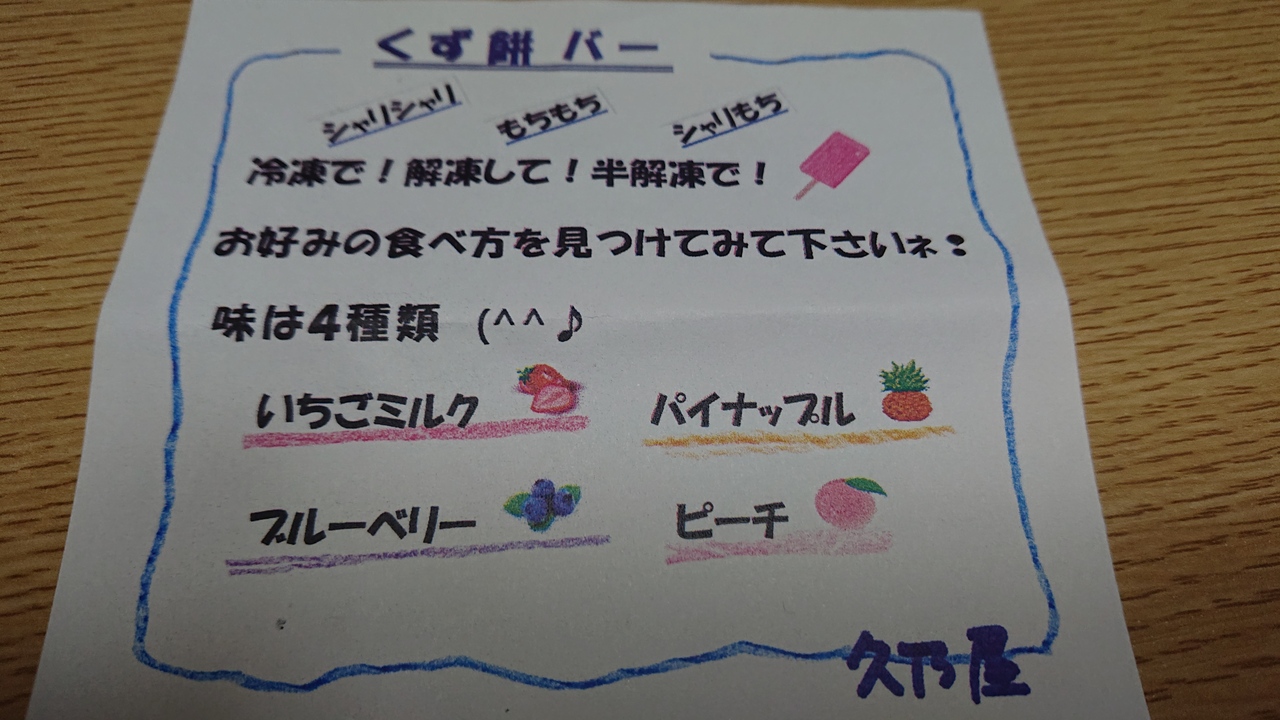 くず餅 バー
シャリシャリ もちもち シャリもち
冷凍で！解凍して！半解凍で！
お好みの食べ方を見つけてみて下さいネ：
味は4種類 (^^♪
いちごミルク パイナップル
ブルーベリー ピーチ
久乃屋